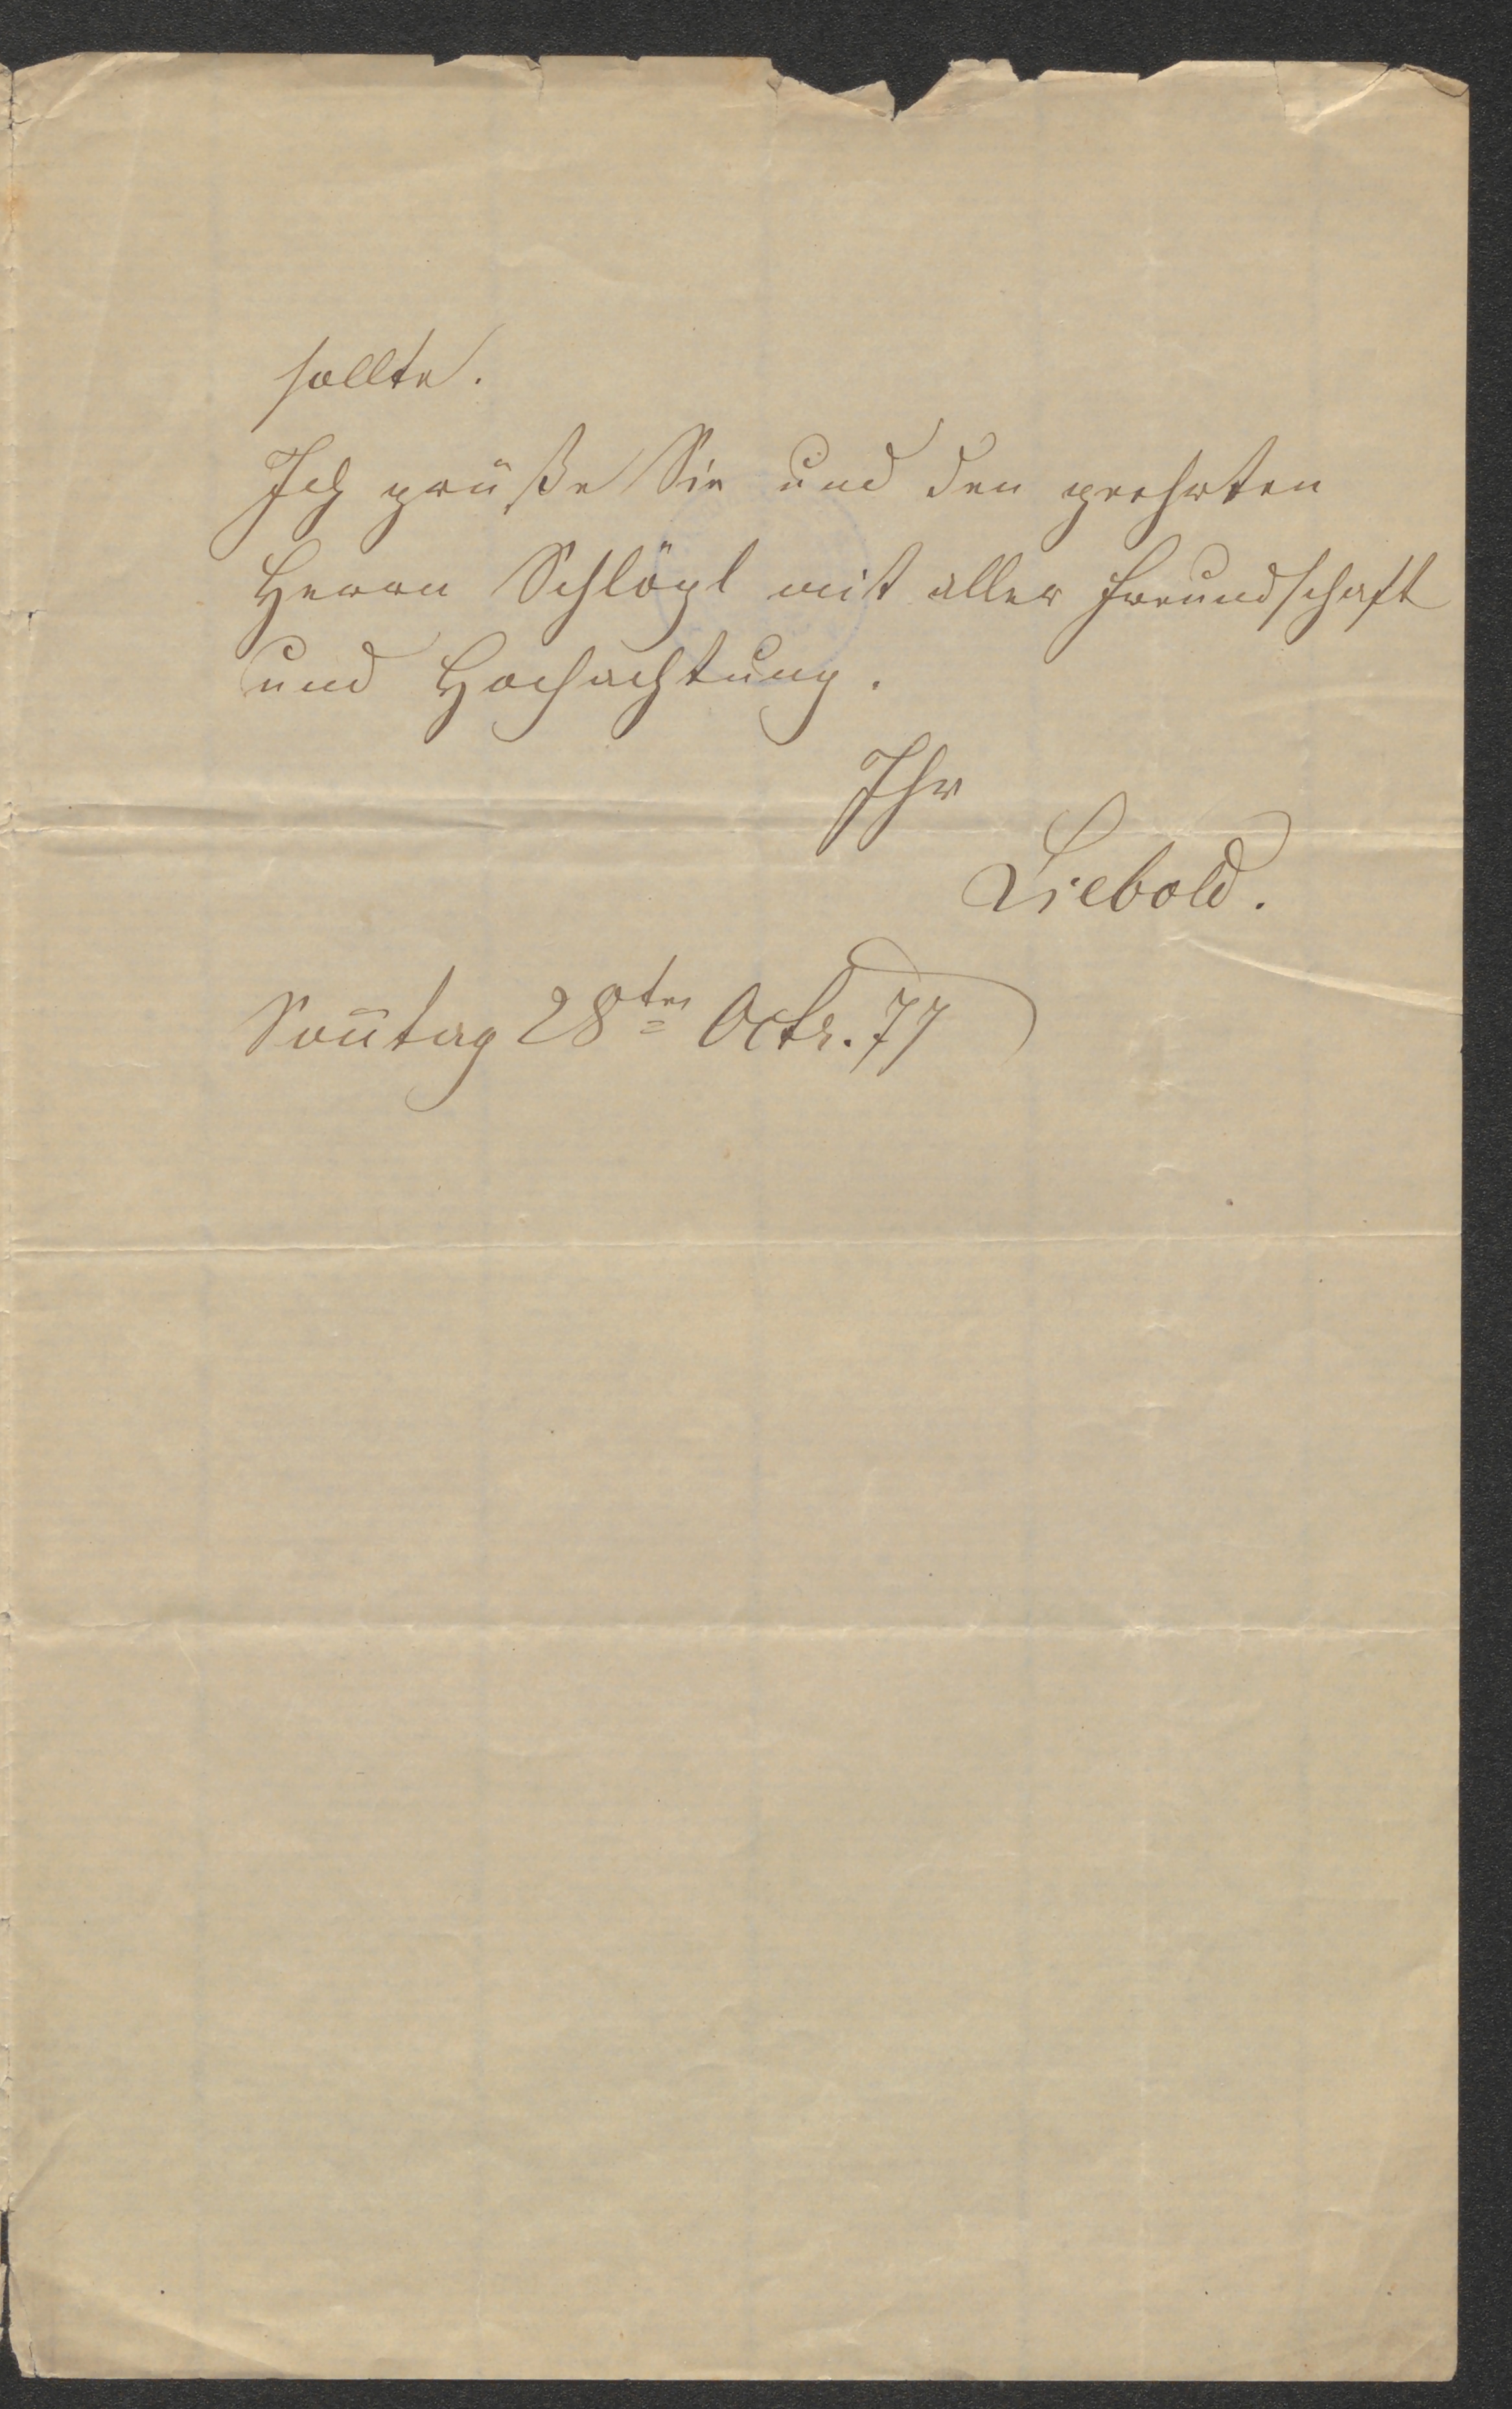 sollte.
Ich grüße Sie und den geehrten
Herrn Schlögl mit aller Freundschaft
und Hochachtung.
Ihr
Liebold.
Soñtag 28ten Octr. 77